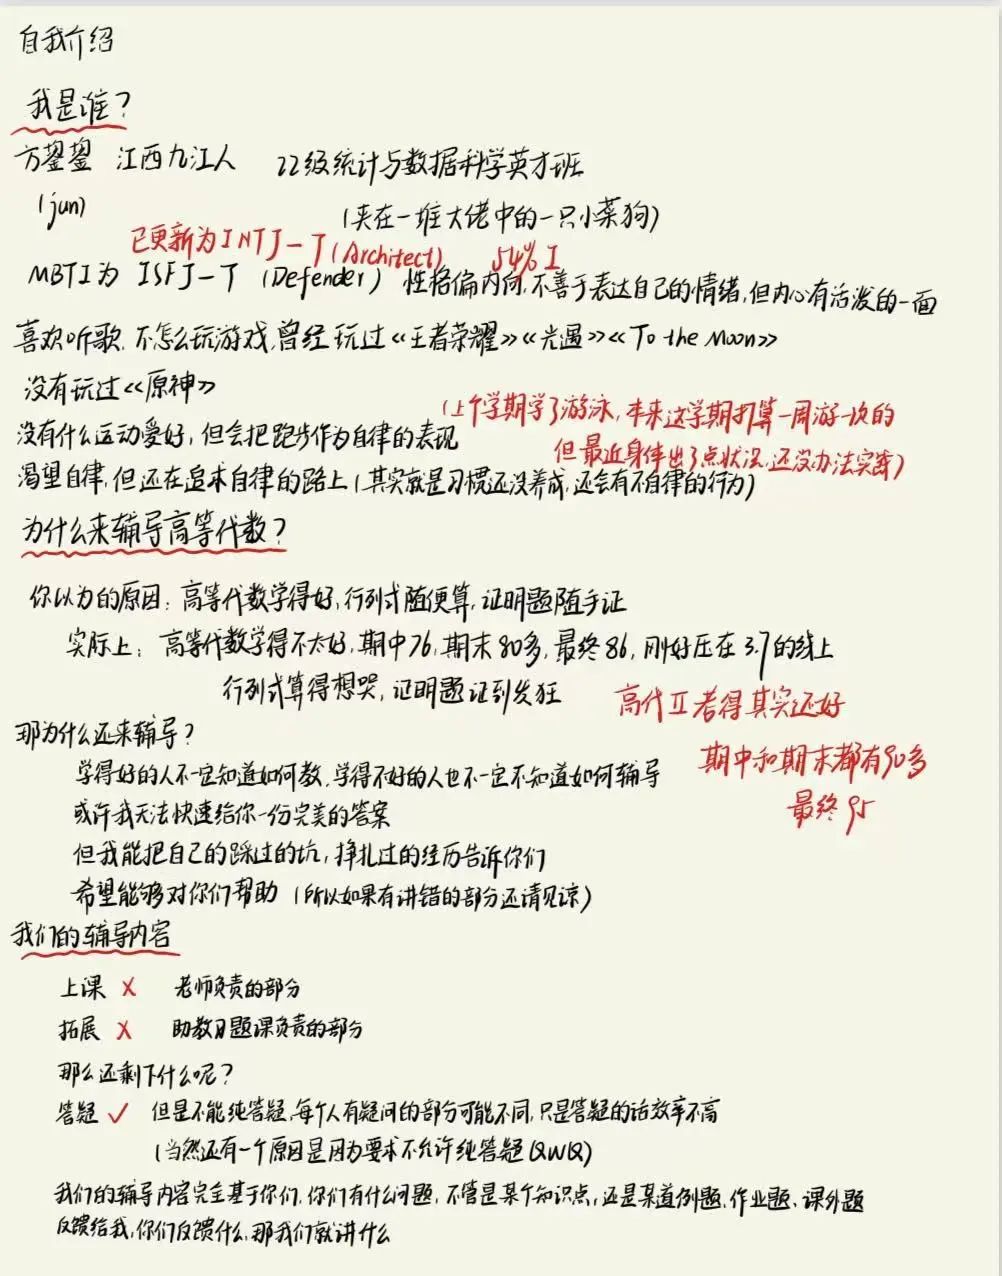 自我介绍
我是谁？
方鋆鋆 江西九江人 22级统计与数据科学英才班
(jun) (夹在一堆大佬中的一只小菜狗)
已更新为INTJ-T(Architect) 54% I
MBTI为 ISFJ-T (Defender) 性格偏内向,不善于表达自己的情绪,但内心有活泼的一面
喜欢听歌,不怎么玩游戏,曾经玩过《王者荣耀》《光遇》《To the Moon》
没有玩过《原神》
(上个学期学了游泳,本来这学期打算一周游一次的
没有什么运动爱好,但会把跑步作为自律的表现
但最近身体出了点状况,还没办法实践)
渴望自律,但还在追求自律的路上(其实就是习惯还没养成,还会有不自律的行为)
为什么来辅导高等代数?
你以为的原因:高等代数学得好,行列式随便算,证明题随手证
实际上:高等代数学得不太好,期中76,期末80多,最终86,刚好压在3.7的线上
行列式算得想哭,证明题证到发狂
高代II考得其实还好
那为什么还来辅导?
期中和期末都有90多
学得好的人不一定知道如何教,学得不好的人也不一定不知道如何辅导
最终95
或许我无法快速给你一份完美的答案
但我能把自己的踩过的坑,挣扎过的经历告诉你们
希望能够对你们帮助(所以如果有讲错的部分还请见谅)
我们的辅导内容
上课 X 老师负责的部分
拓展 X 助教习题课负责的部分
那么还剩下什么呢?
答疑 ✓ 但是不能纯答疑,每个人有疑问的部分可能不同,只是答疑的话效率不高
(当然还有一个原因是因为要求不允许纯答疑QWQ)
我们的辅导内容完全基于你们,你们有什么问题,不管是某个知识点,还是某道例题、作业题、课外题
反馈给我,你们反馈什么,那我们就讲什么